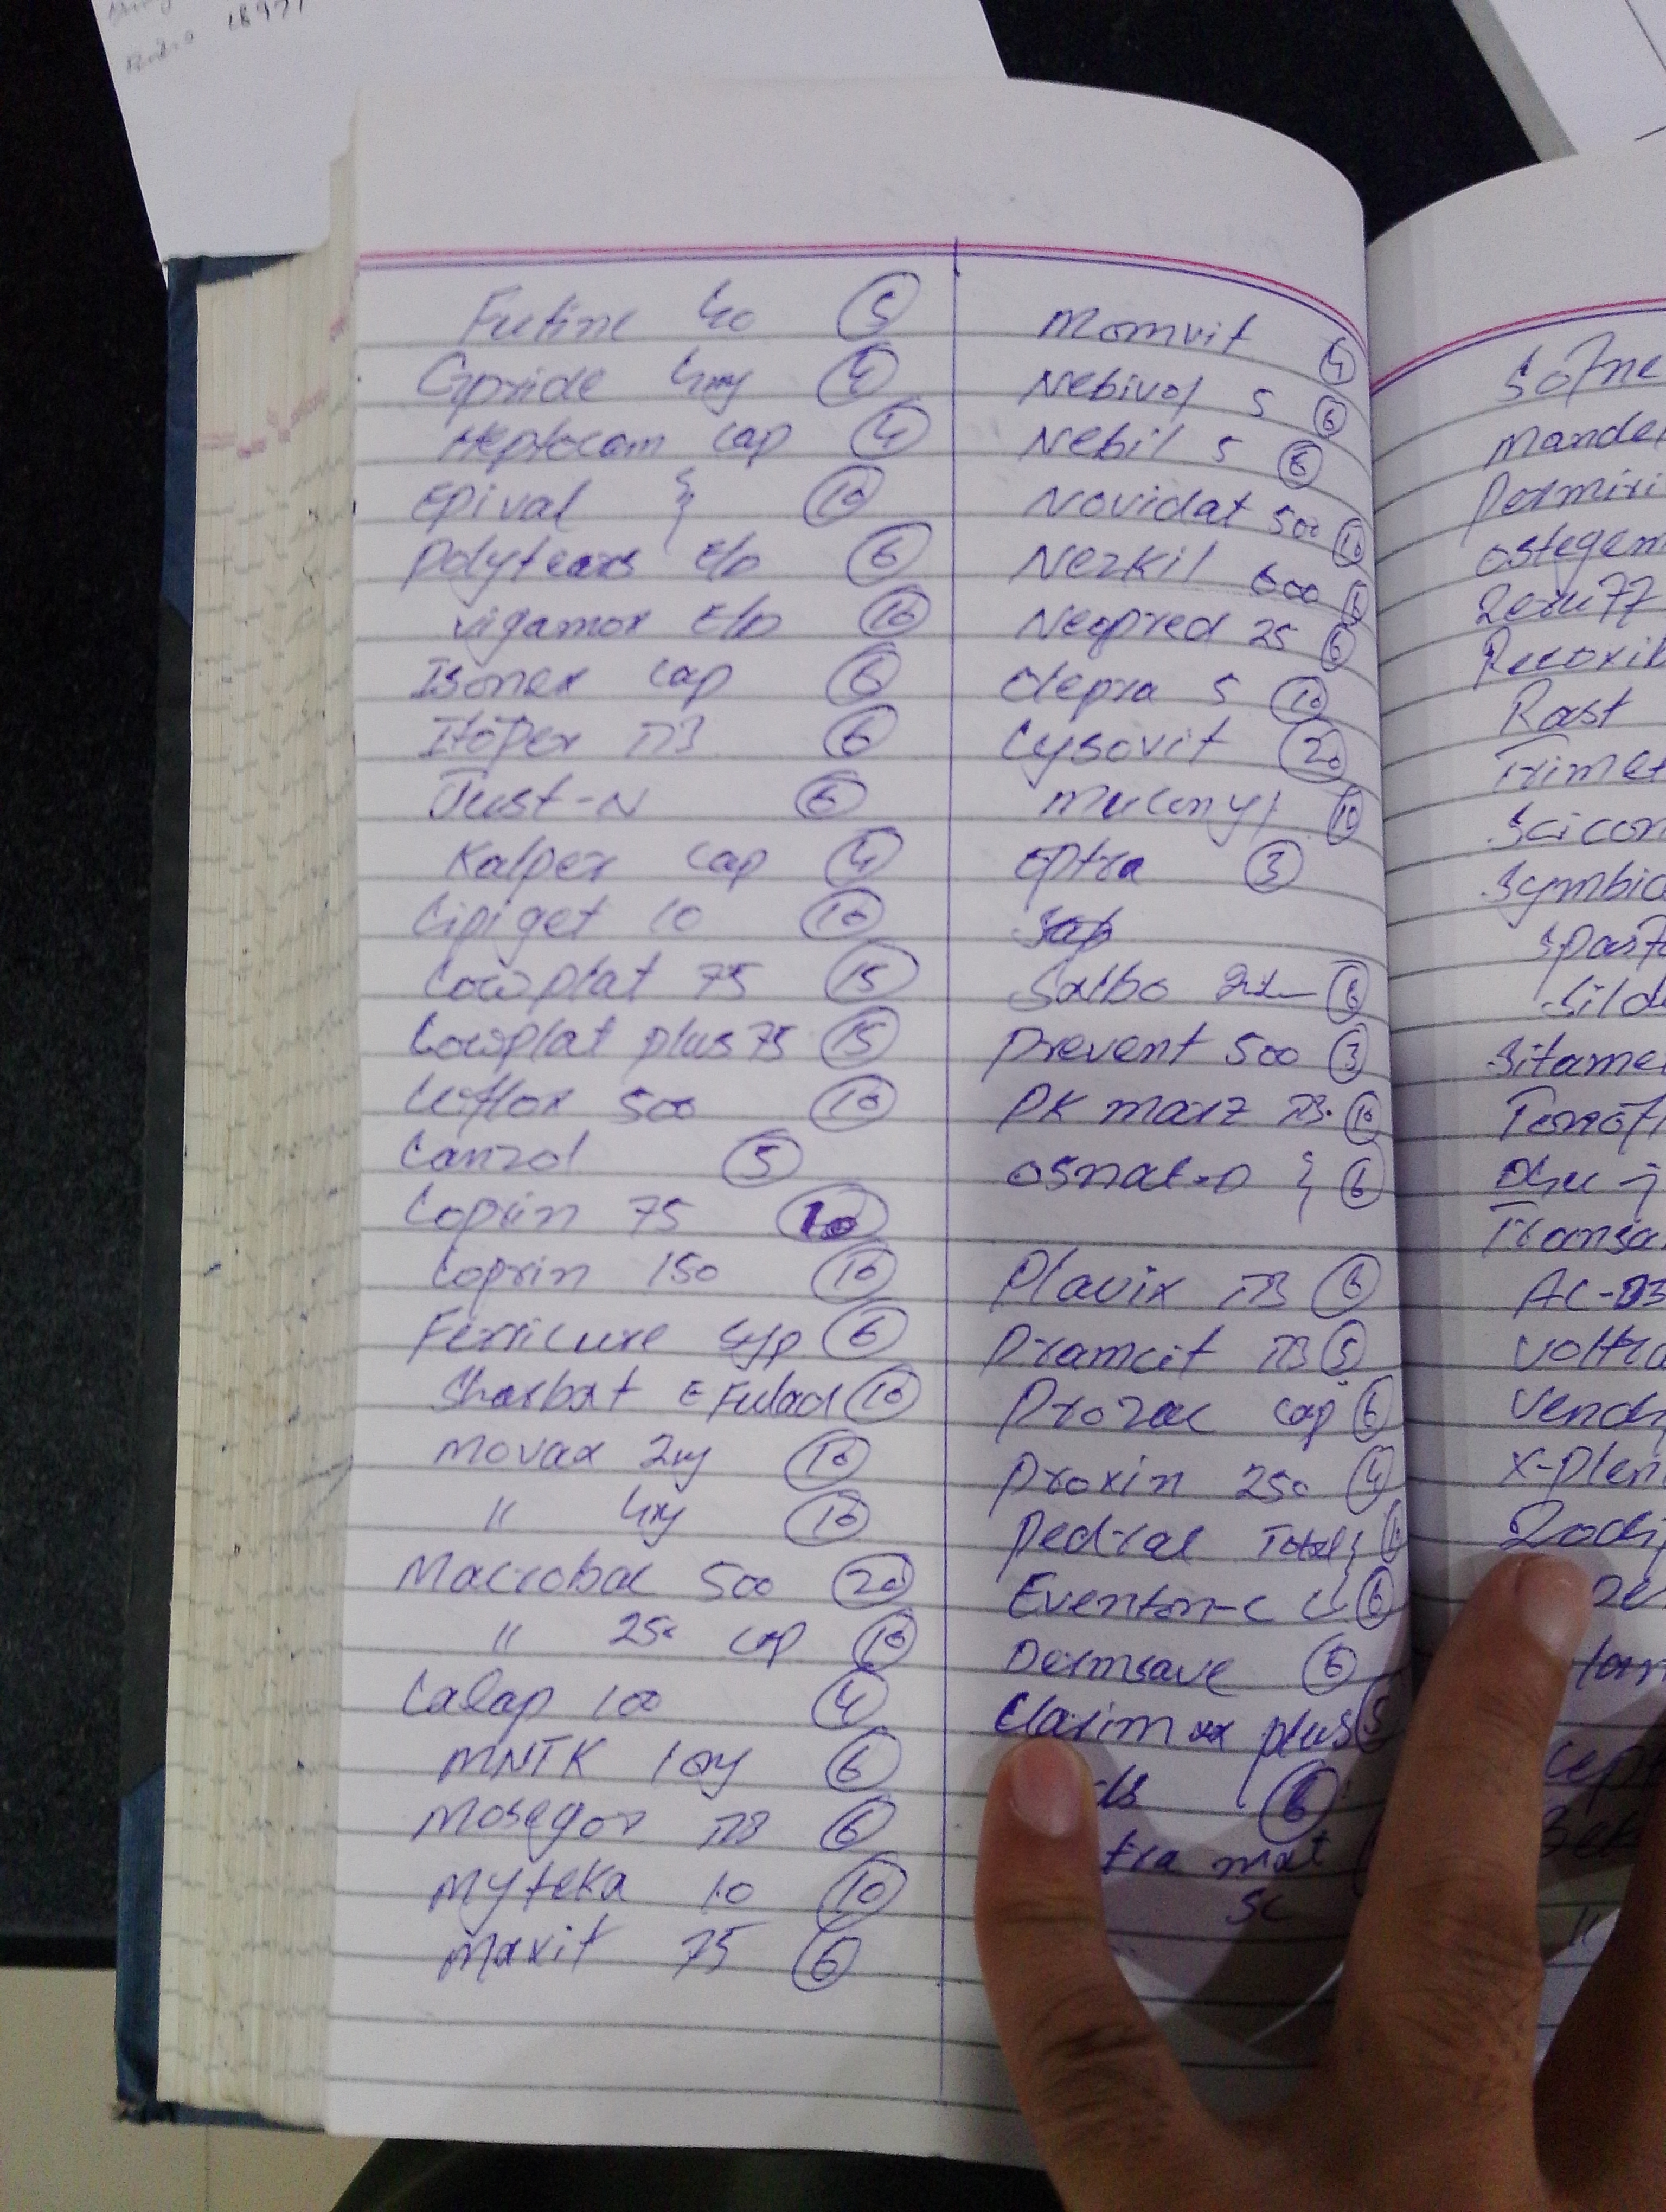 18971
Futine 40 5
Gpride 4mg 4
Heptocam cap 4
Epival } 10
Polytears E/D 6
Vigamox E/D 10
Isonex cap 6
Itopex TB 6
Just-N 6
Kalpex cap 4
Lipiget 10 10
Lowplat 75 15
Lowplat plus 75 15
Leflox 500 10
Lanzol 5
Loprin 75 10
Loprin 150 10
Ferricure syp 6
Sharbat E Fulad 10
Movax 2mg 10
" 4mg 10
Macrobac 500 20
" 250 cap 10
Calap 100 4
MNTK 10mg 6
Mosegor TB 6
Myteka 10 10
Maxit 75 6
Momvit 4
Nebivol 5 6
Nebil 5 6
Novidat 500 10
Nezkil 600 6
Neopred 25 6
Olepra 5 10
Cysovit 20
Muconyl 10
Eptra 3
Salbo 6
Prevent 500 3
PK marz TB. 10
Osnat-D } 6
Plavix TB 6
Pramcit TB 5
Prozac cap 6
Proxin 250 4
Pedral Total }
Eventon-C 6
Dermsave 6
Clarim xx plus 5
ds 6
tra mat
SC
Sofne
Mande
Permiri
Ostegem
Rast
Trimet
Scicon
Symbio
Spas
Sild
Sitame
Transa
AC-D3
Voltra
Vend
X-plen